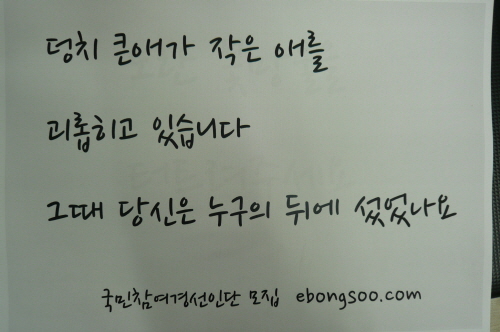 덩치 큰애가 작은 애를
괴롭히고 있습니다
그때 당신은 누구의 뒤에 섰었나요
국민참여경선인단 모집 ebongsoo.com